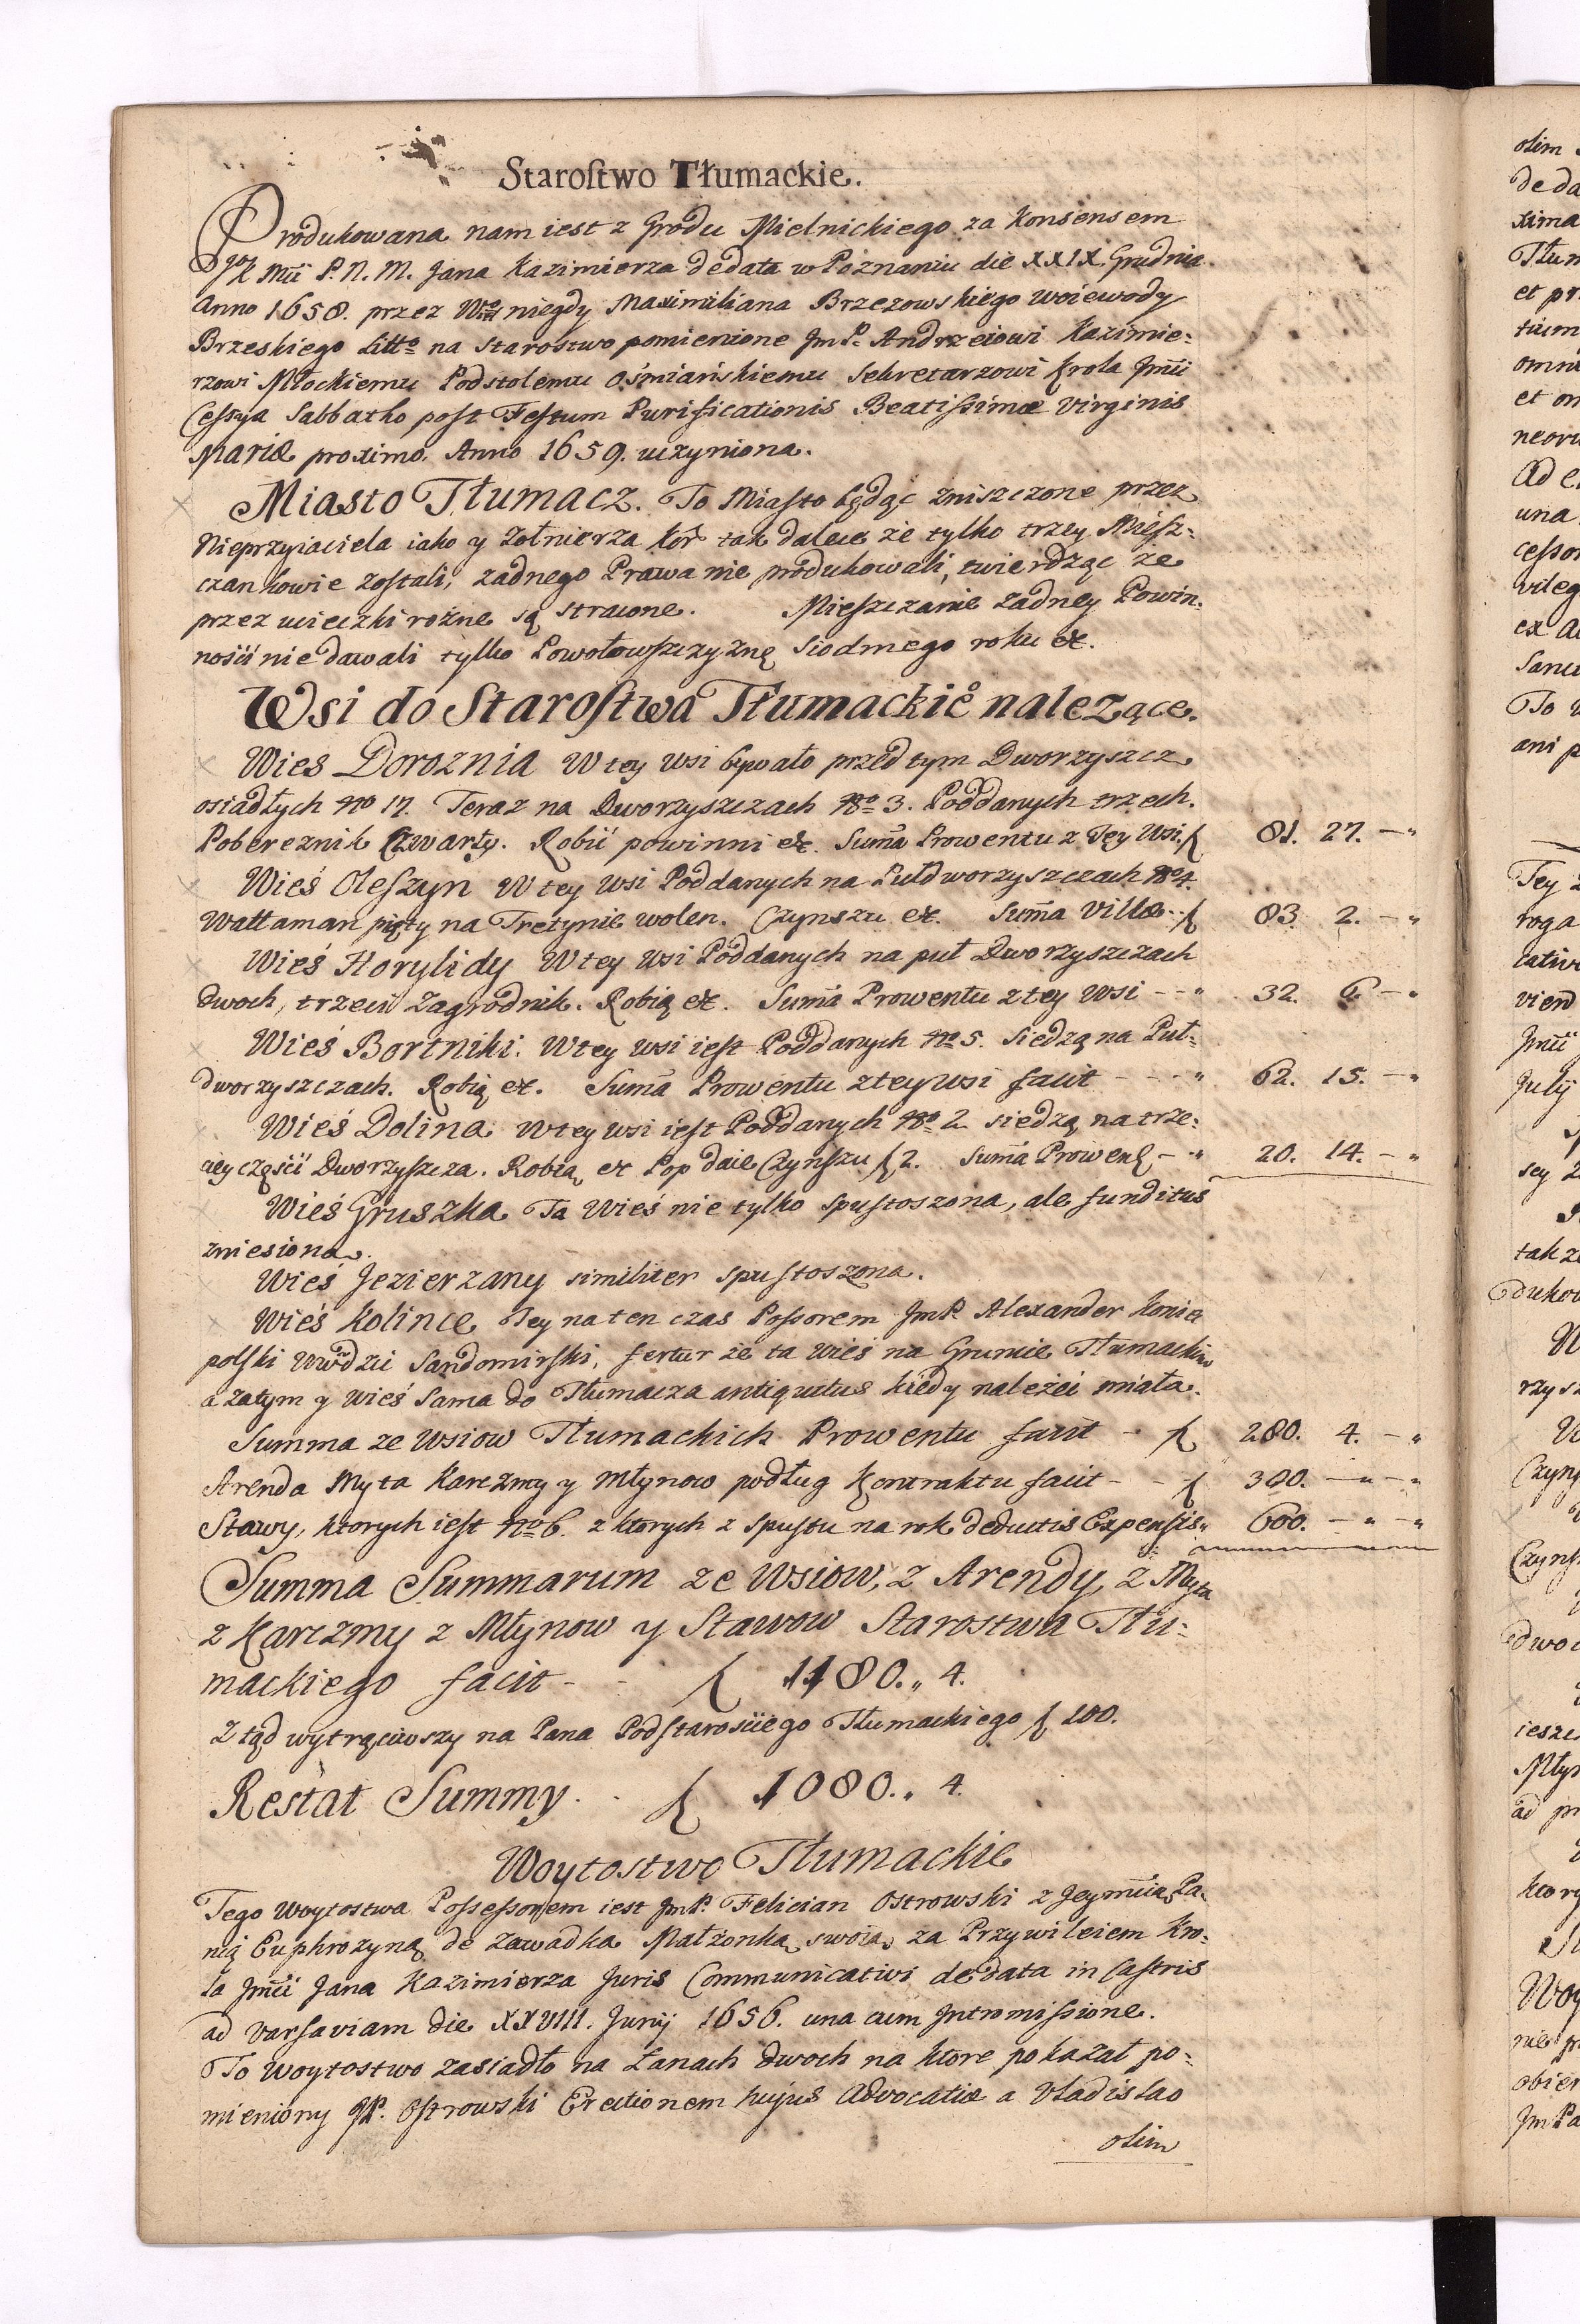 Starostwo Tłumackie.
Produkowana nam iest z Grodu Mielnickiego za Konsensem
JoK Mci P. N. M. Jana Kazimierza de data w Poznaniu die XXIX. Grudnia
Anno 1658. przez niegdy Maximiliana Brzezowskiego Woiewody
Brzeskiego Litto na Starostwo pomienione JmP. Andrzeiowi Kazimie:
rzowi Młockiemu Podstolemu Ośmiańskiemu Sekretarzowi Krola Jmci
Cessya Sabbatho post Festum Purificationis Beatissimæ Virginis
Mariæ proximo. Anno 1659. uczyniona.
Miasto Tłumacz. To Miasto będąc zniszczone przez
Nieprzyiaciela iako y Zołnierza Kor tak dalece że tylko trzey Miesz:
czankowie zostali, żadnego Prawa nie produkowali, twierdząc ze
przez ucieczki rożne są stracone. Mieszczanie żadney Powin:
ności nie dawali tylko Powołowszczyznę siodmego roku &c.
Wsi do Starostwa Tłumackieo nalezące.
Wies Doroznia W tey wsi bywało przedtym Dworzyszcz
osiadłych No 17. Teraz na Dworzyszczach No 3. Poddanych trzech.
Pobereznik Czwarty. Robić powinni &c. Suma Prowentu z Tey Wsi. f 81. 27. - "
Wieś Oleszyn W tey Wsi Poddanych na Pułdworzyszczach No 4.
Wattaman piąty na Tretynie wolen. Czynszu &c. Suma Villæ - f 83. 2. - "
Wieś Horylidy W tey Wsi Poddanych na puł Dworzyszczach
dwoch, trzeci Zagrodnik. Robią &c. Suma Prowentu z tey Wsi - - " 32. 6. - "
Wieś Bortniki. W tey wsi iest Poddanych No 5. Siedzą na Puł:
dworzyszczach. Robią &c. Suma Prowentu z tey wsi facit - - - " 62. 15. - "
Wieś Dolina. W tey wsi iest Poddanych No 2 siedzą na trze:
ciey części Dworzyszcza. Robią &c Pop daie Czynszu f 2. Suma Prowen - " 20. 14. - "
Wieś Gruszka Ta Wieś nie tylko spustoszona, ale funditus
zniesiona.
Wieś Jezierzany similiter spustoszona.
Wieś Kolince Tey na ten czas Possorem JmP. Alexander Koniec
polski Wwodzic Sandomirski, fertur że ta Wieś na Gruncie Tłumackim
a zatym y Wieś sama do Tłumacza antiquitus kiedy należeć miała.
Summa ze Wsiow Tłumackich Prowentu facit - f 280. 4. - "
Arenda Myta Karczmy y Młynow podług Kontraktu facit - - f 300. - " - "
Stawy, ktorych iest No 6. z ktorych z spustu na rok deductis Expensis " 600. - " - "
Summa Summarum ze Wsiow, z Arendy, z Myta
z Karczmy z Młynow y Stawow Starostwa Tłu:
mackiego facit - - f 1180. " 4.
Z tąd wytrąciwszy na Pana Podstarościego Tłumackiego f 100.
Restat Summy . . f 1080. " 4.
Woytostwo Tłumackie
Tego Woytostwa Possessorem iest JmP. Felician Ostrowski z Jeymcią Pa:
nią Euphrozyną de Zawadka Małżonką swoią za Przywileiem Kro:
la Jmci Jana Kazimierza Juris Communicativi de data in Castris
ad Varsaviam die XXVIII. Junij 1656. una cum Intromissione.
To Woytostwo zasiadło na Łanach dwoch na ktore pokazał po:
mieniony JP. Ostrowski Erectionem hujus Advocatiæ a Vladislao
olim